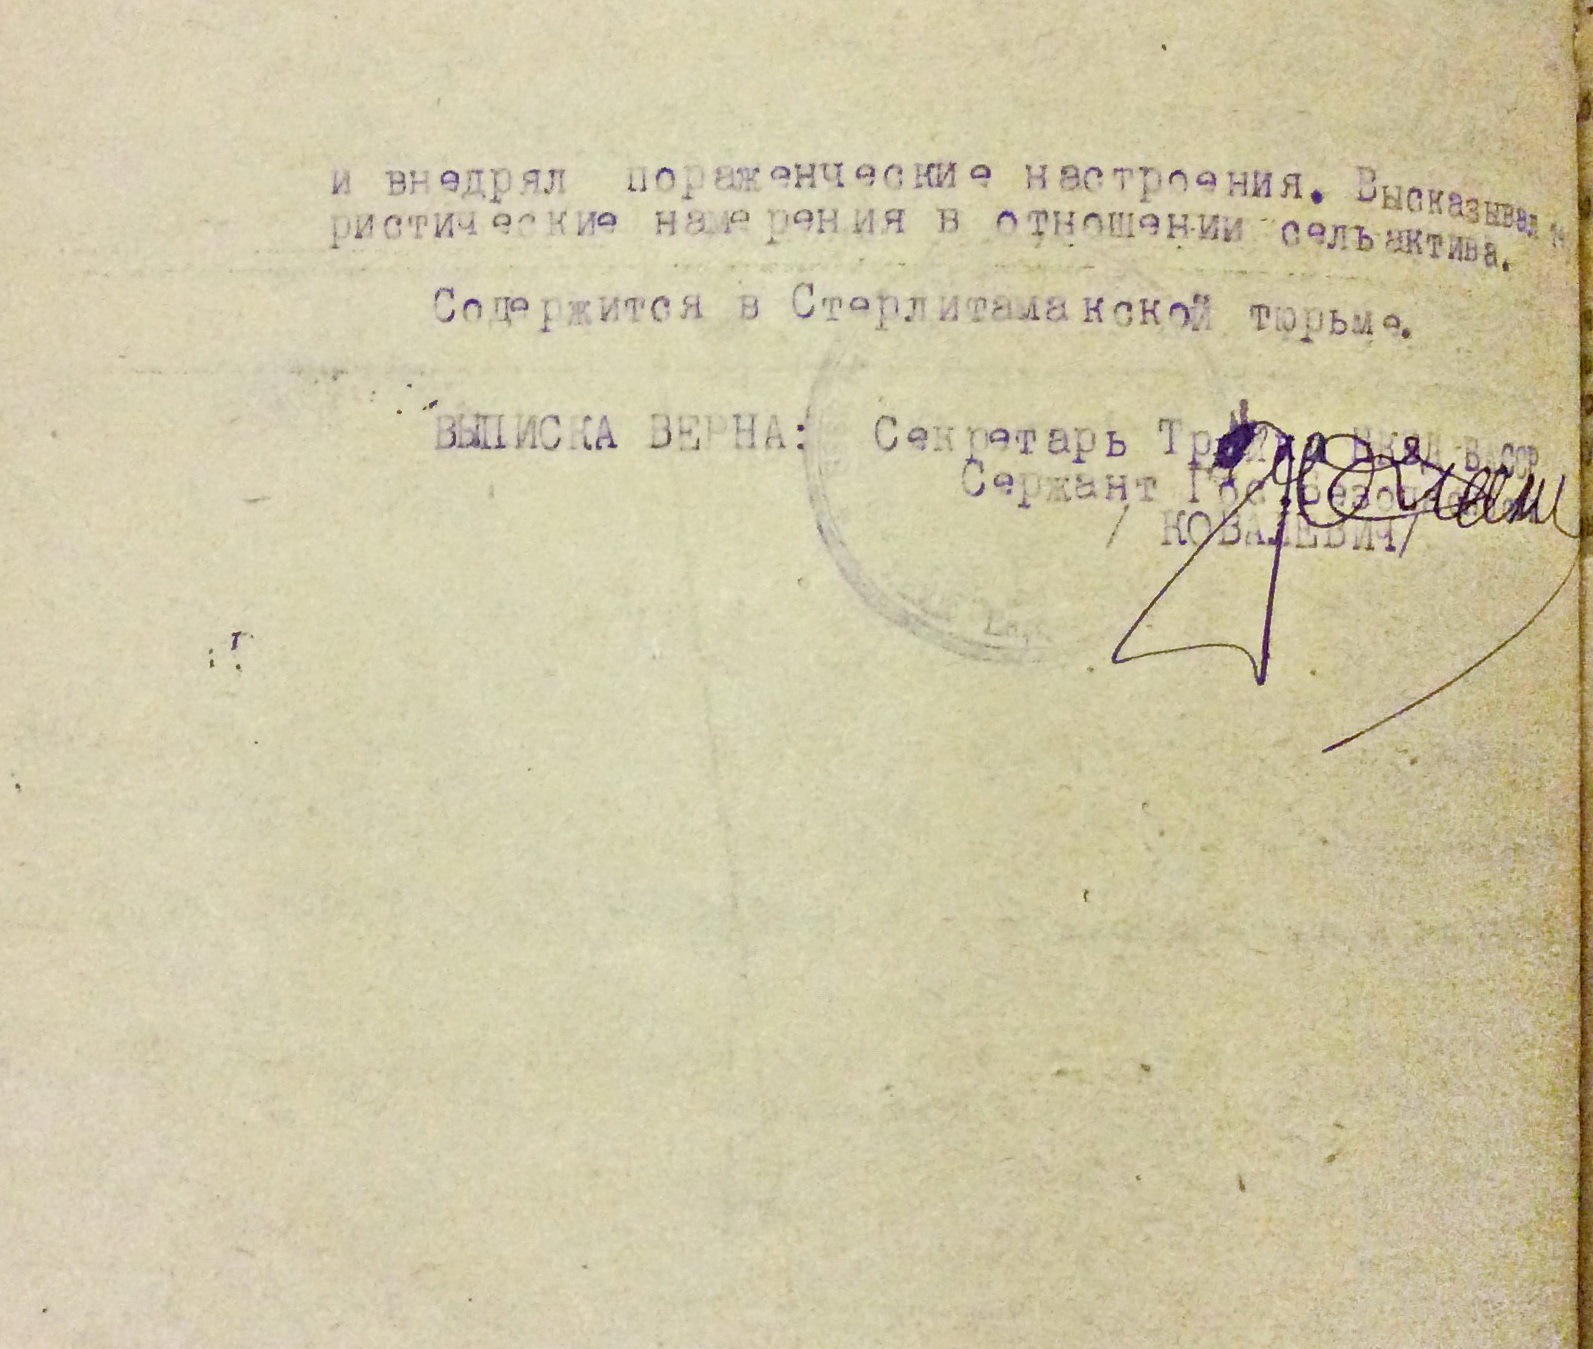 и внедрял пораженческие настроения. Высказывал
ристические намерения в отношении сельактива.
Содержится в Стерлитамакской тюрьме.
ВЫПИСКА ВЕРНА: Секретарь Тройки НКВД БАССР
Сержант Гос.Безопасн
/ КОВАЛЕВИЧ/